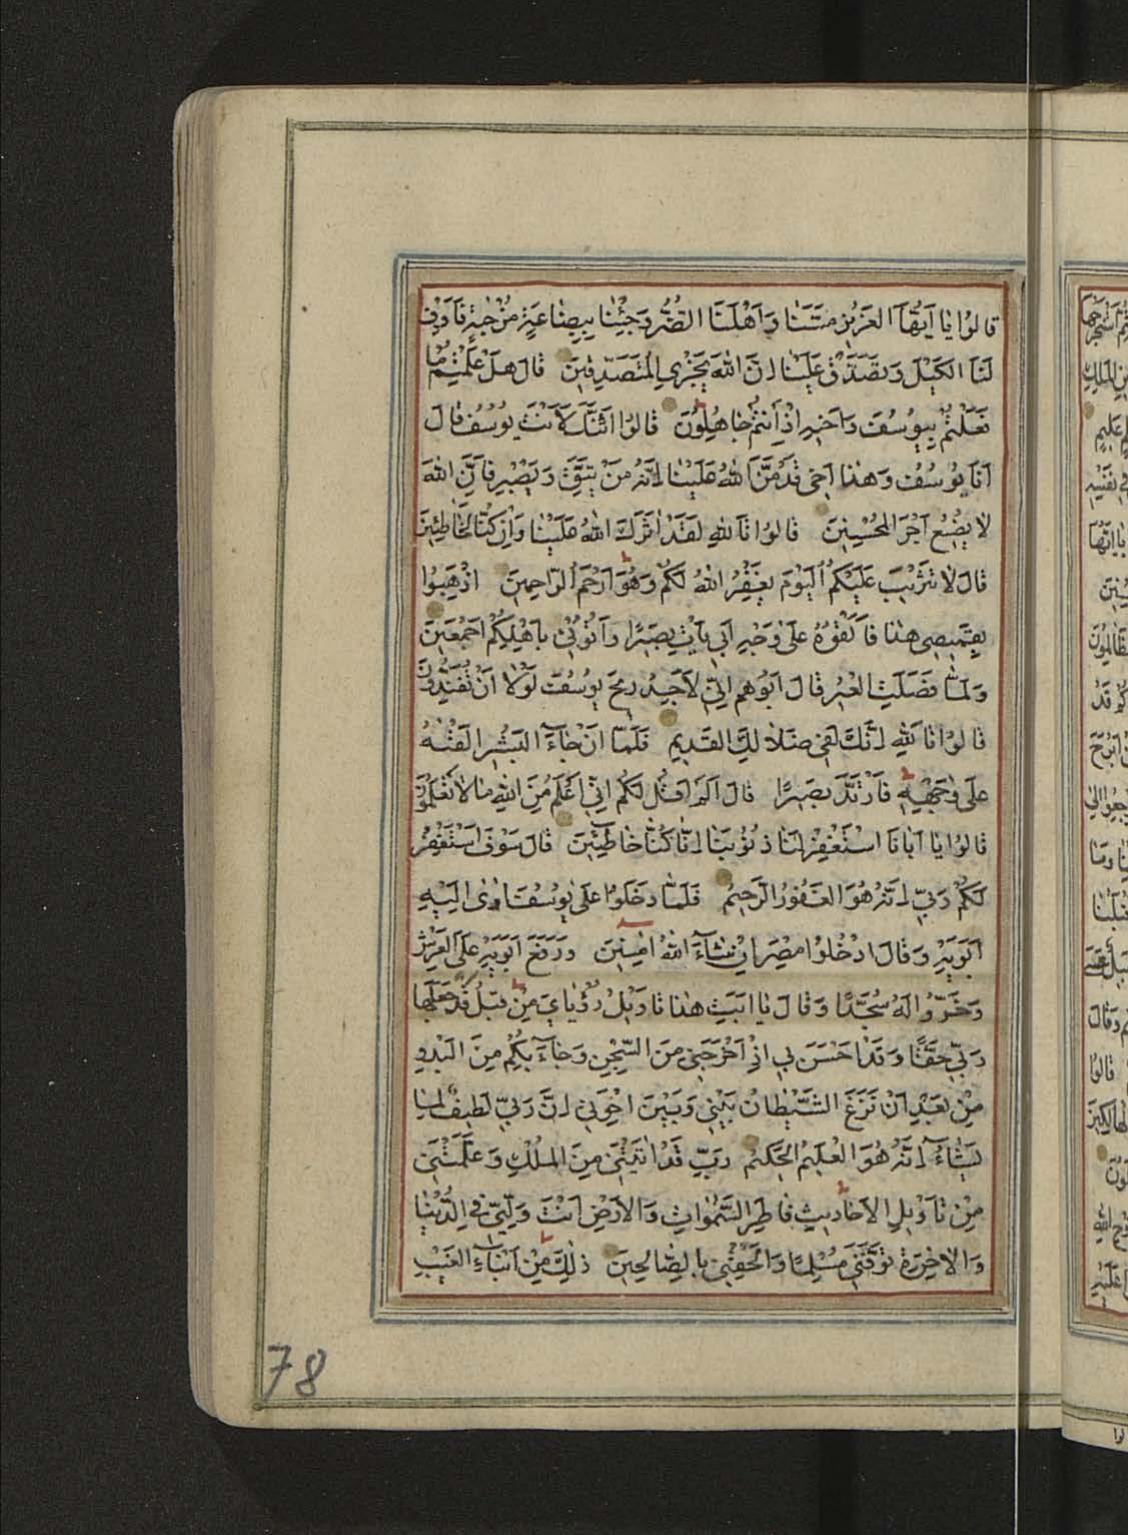 قالُوا يٰا اَيُّهَا العَزيزُ مَسَّنٰا وَاَهْلَنَا الضُّرُّ وَجِئْنٰا بِبِضٰاعَةٍ مُزْجٰيةٍ فَاَوْفِ
لَنَا الكَيْلَ وَتَصَدَّقْ عَلَيْنٰا اِنَّ اللّٰهَ يَجْزِي المُتَصَدِّقينَ قٰالَ هَلْ عَلِمْتُمْ مٰا
فَعَلْتُمْ بِيُوسُفَ وَاَخيهِ اِذْ اَنْتُمْ جٰاهِلُونَ قٰالُوا اَئِنَّكَ لَاَنْتَ يُوسُفُ قٰالَ
اَنَا يُوسُفُ وَهٰذا اَخى قَدْ مَنَّ اللّٰهُ عَلَيْنٰا اِنَّهُ مَنْ يَتَّقِ وَيَصْبِرْ فَاِنَّ اللّٰهَ
لٰا يُضيعُ اَجْرَ المُحْسِنينَ قٰالُوا تَاللّٰهِ لَقَدْ اٰثَرَكَ اللّٰهُ عَلَيْنٰا وَاِنْ كُنّٰا لَخٰاطِئينَ
قٰالَ لٰا تَثْريبَ عَلَيْكُمُ اليَوْمَ يَغْفِرُ اللّٰهُ لَكُمْ وَهُوَ اَرْحَمُ الرّٰاحِمينَ اِذْهَبُوا
بِقَميصى هٰذٰا فَاَلْقُوهُ عَلىٰ وَجْهِ اَبي يَأْتِ بَصيرًا وَاْتُوني بِاَهْلِكُمْ اَجْمَعينَ
وَلَمّٰا فَصَلَتِ العيرُ قٰالَ اَبُوهُمْ اِنّي لَاَجِدُ ريحَ يُوسُفَ لَوْلٰا اَنْ تُفَنِّدُونِ
قٰالُوا تَاللّٰهِ اِنَّكَ لَفي ضَلٰالِكَ القَديمِ فَلَمّٰا اَنْ جٰاءَ البَشيرُ اَلْقٰىهُ
عَلىٰ وَجْهِهِ فَارْتَدَّ بَصيرًا قٰالَ اَلَمْ اَقُلْ لَكُمْ اِنّي اَعْلَمُ مِنَ اللّٰهِ مٰا لٰا تَعْلَمُونَ
قٰالُوا يٰا اَبٰانَا اسْتَغْفِرْ لَنٰا ذُنُوبَنٰا اِنّٰا كُنّٰا خٰاطِئينَ قٰالَ سَوْفَ اَسْتَغْفِرُ
لَكُمْ رَبّي اِنَّهُ هُوَ الغَفُورُ الرَّحيمُ فَلَمّٰا دَخَلُوا عَلىٰ يُوسُفَ اٰوىٰ اِلَيْهِ
اَبَوَيْهِ وَقٰالَ ادْخُلُوا مِصْرَ اِنْ شٰاءَ اللّٰهُ اٰمِنينَ وَرَفَعَ اَبَوَيْهِ عَلَى العَرْشِ
وَخَرُّوا لَهُ سُجَّدًا وَقٰالَ يٰا اَبَتِ هٰذٰا تَأْويلُ رُؤْيٰايَ مِنْ قَبْلُ قَدْ جَعَلَهٰا
رَبّي حَقًّا وَقَدْ اَحْسَنَ بي اِذْ اَخْرَجَني مِنَ السِّجْنِ وَجٰاءَ بِكُمْ مِنَ البَدْوِ
مِنْ بَعْدِ اَنْ نَزَغَ الشَّيْطٰانُ بَيْني وَبَيْنَ اِخْوَتي اِنَّ رَبّي لَطيفٌ لِمٰا
يَشٰاءُ اِنَّهُ هُوَ العَليمُ الحَكيمُ رَبِّ قَدْ اٰتَيْتَني مِنَ المُلْكِ وَعَلَّمْتَني
مِنْ تَأْويلِ الاَحٰاديثِ فٰاطِرَ السَّمٰوٰاتِ وَالاَرْضِ اَنْتَ وَلِيّي فِي الدُّنْيٰا
وَالاٰخِرَةِ تَوَفَّني مُسْلِمًا وَاَلْحِقْني بِالصّٰالِحينَ ذٰلِكَ مِنْ اَنْبٰاءِ الغَيْبِ
78